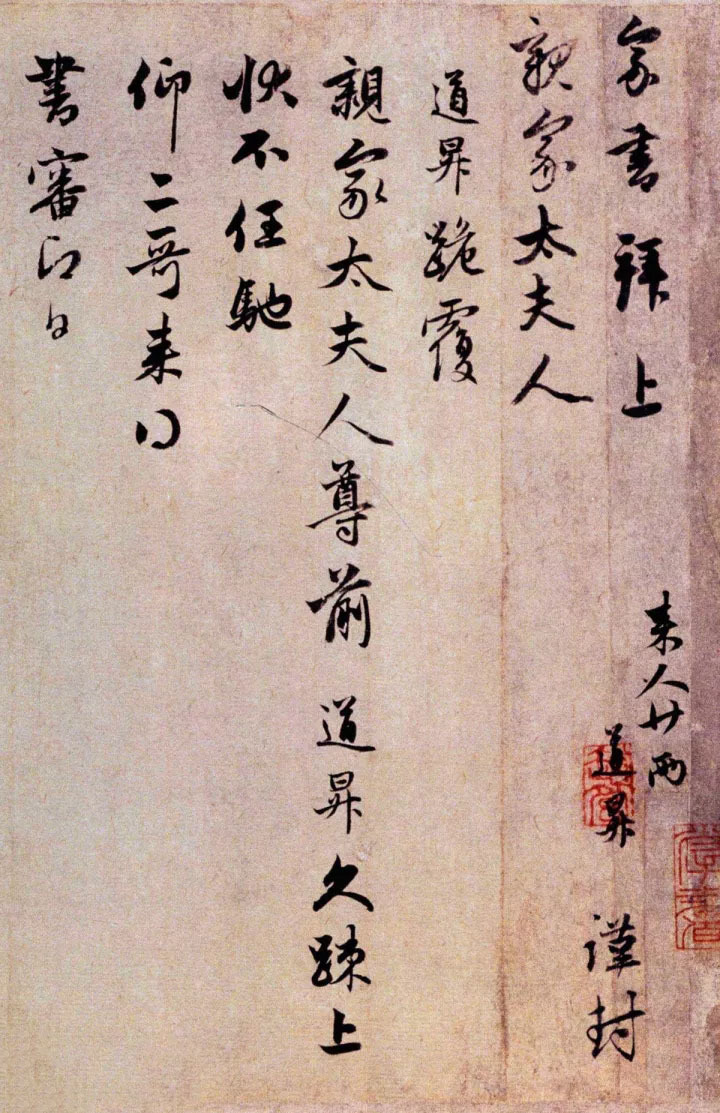 家書拜上
来人廿兩
親家太夫人
道昇謹封
道昇跪覆
親家太夫人尊前道昇久疎上
狀不任馳
仰二哥来日
書審即日